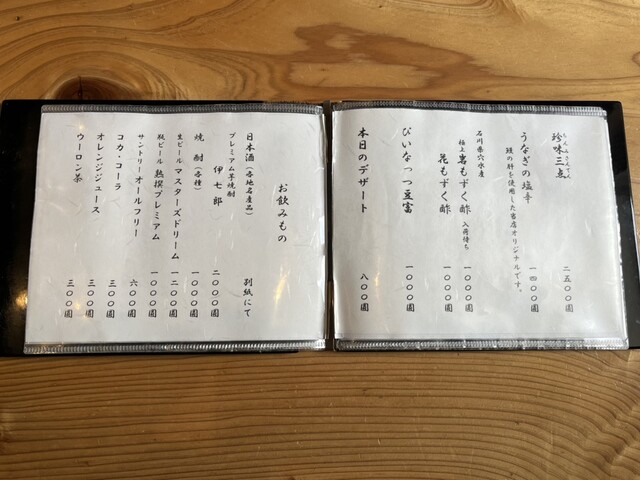 珍味三点 二五〇〇圓
ちんみさんてん
うなぎの塩辛 一四〇〇圓
鰻の肝を使用した当店オリジナルです。
石川県穴水産
極上岩もずく酢 入荷待ち
花もずく酢 一〇〇〇圓
ぴいなっつ豆富 一〇〇〇圓
本日のデザート 八〇〇圓
お飲みもの
日本酒(各地名産品) 別紙にて
プレミアム芋焼酎
伊七郎 二〇〇〇圓
焼酎(各種) 一〇〇〇圓
生ビール マスターズドリーム 一二〇〇圓
瓶ビール 熟撰プレミアム 一〇〇〇圓
サントリーオールフリー 六〇〇圓
コカ・コーラ 三〇〇圓
オレンジジュース 三〇〇圓
ウーロン茶 三〇〇圓